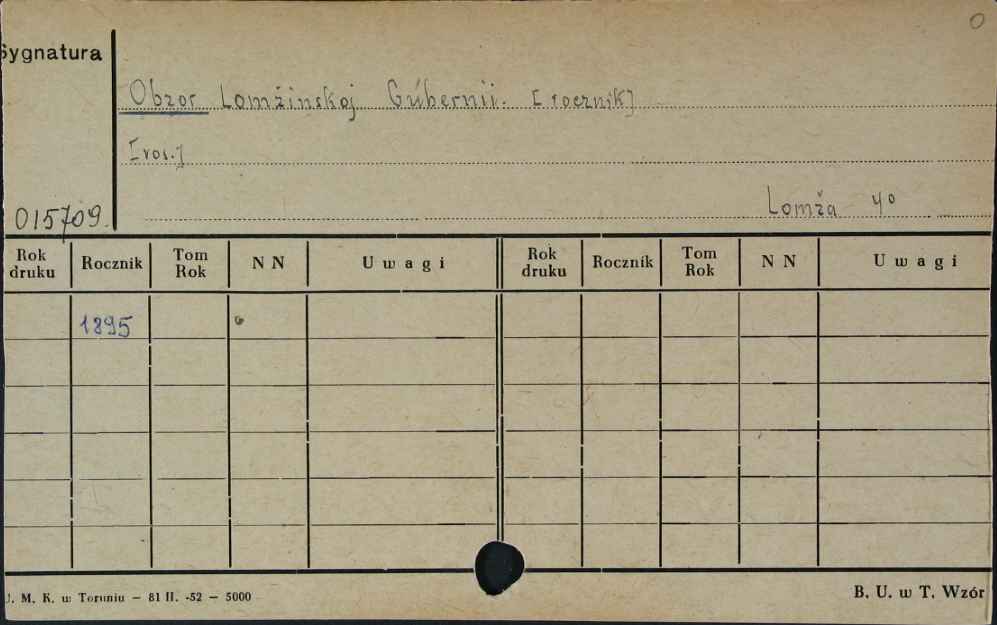 O
Sygnatura
Obzor Lomžinskoj Gúbernii. [rocznik]
[ros.]
Lomža 4°
015709.
Rok druku Rocznik Tom Rok N N Uwagi Rok druku Rocznik Tom Rok N N Uwagi
1895
J. M. K. w Toruniu — 81 II. -52 — 5000
B. U. w T. Wzór